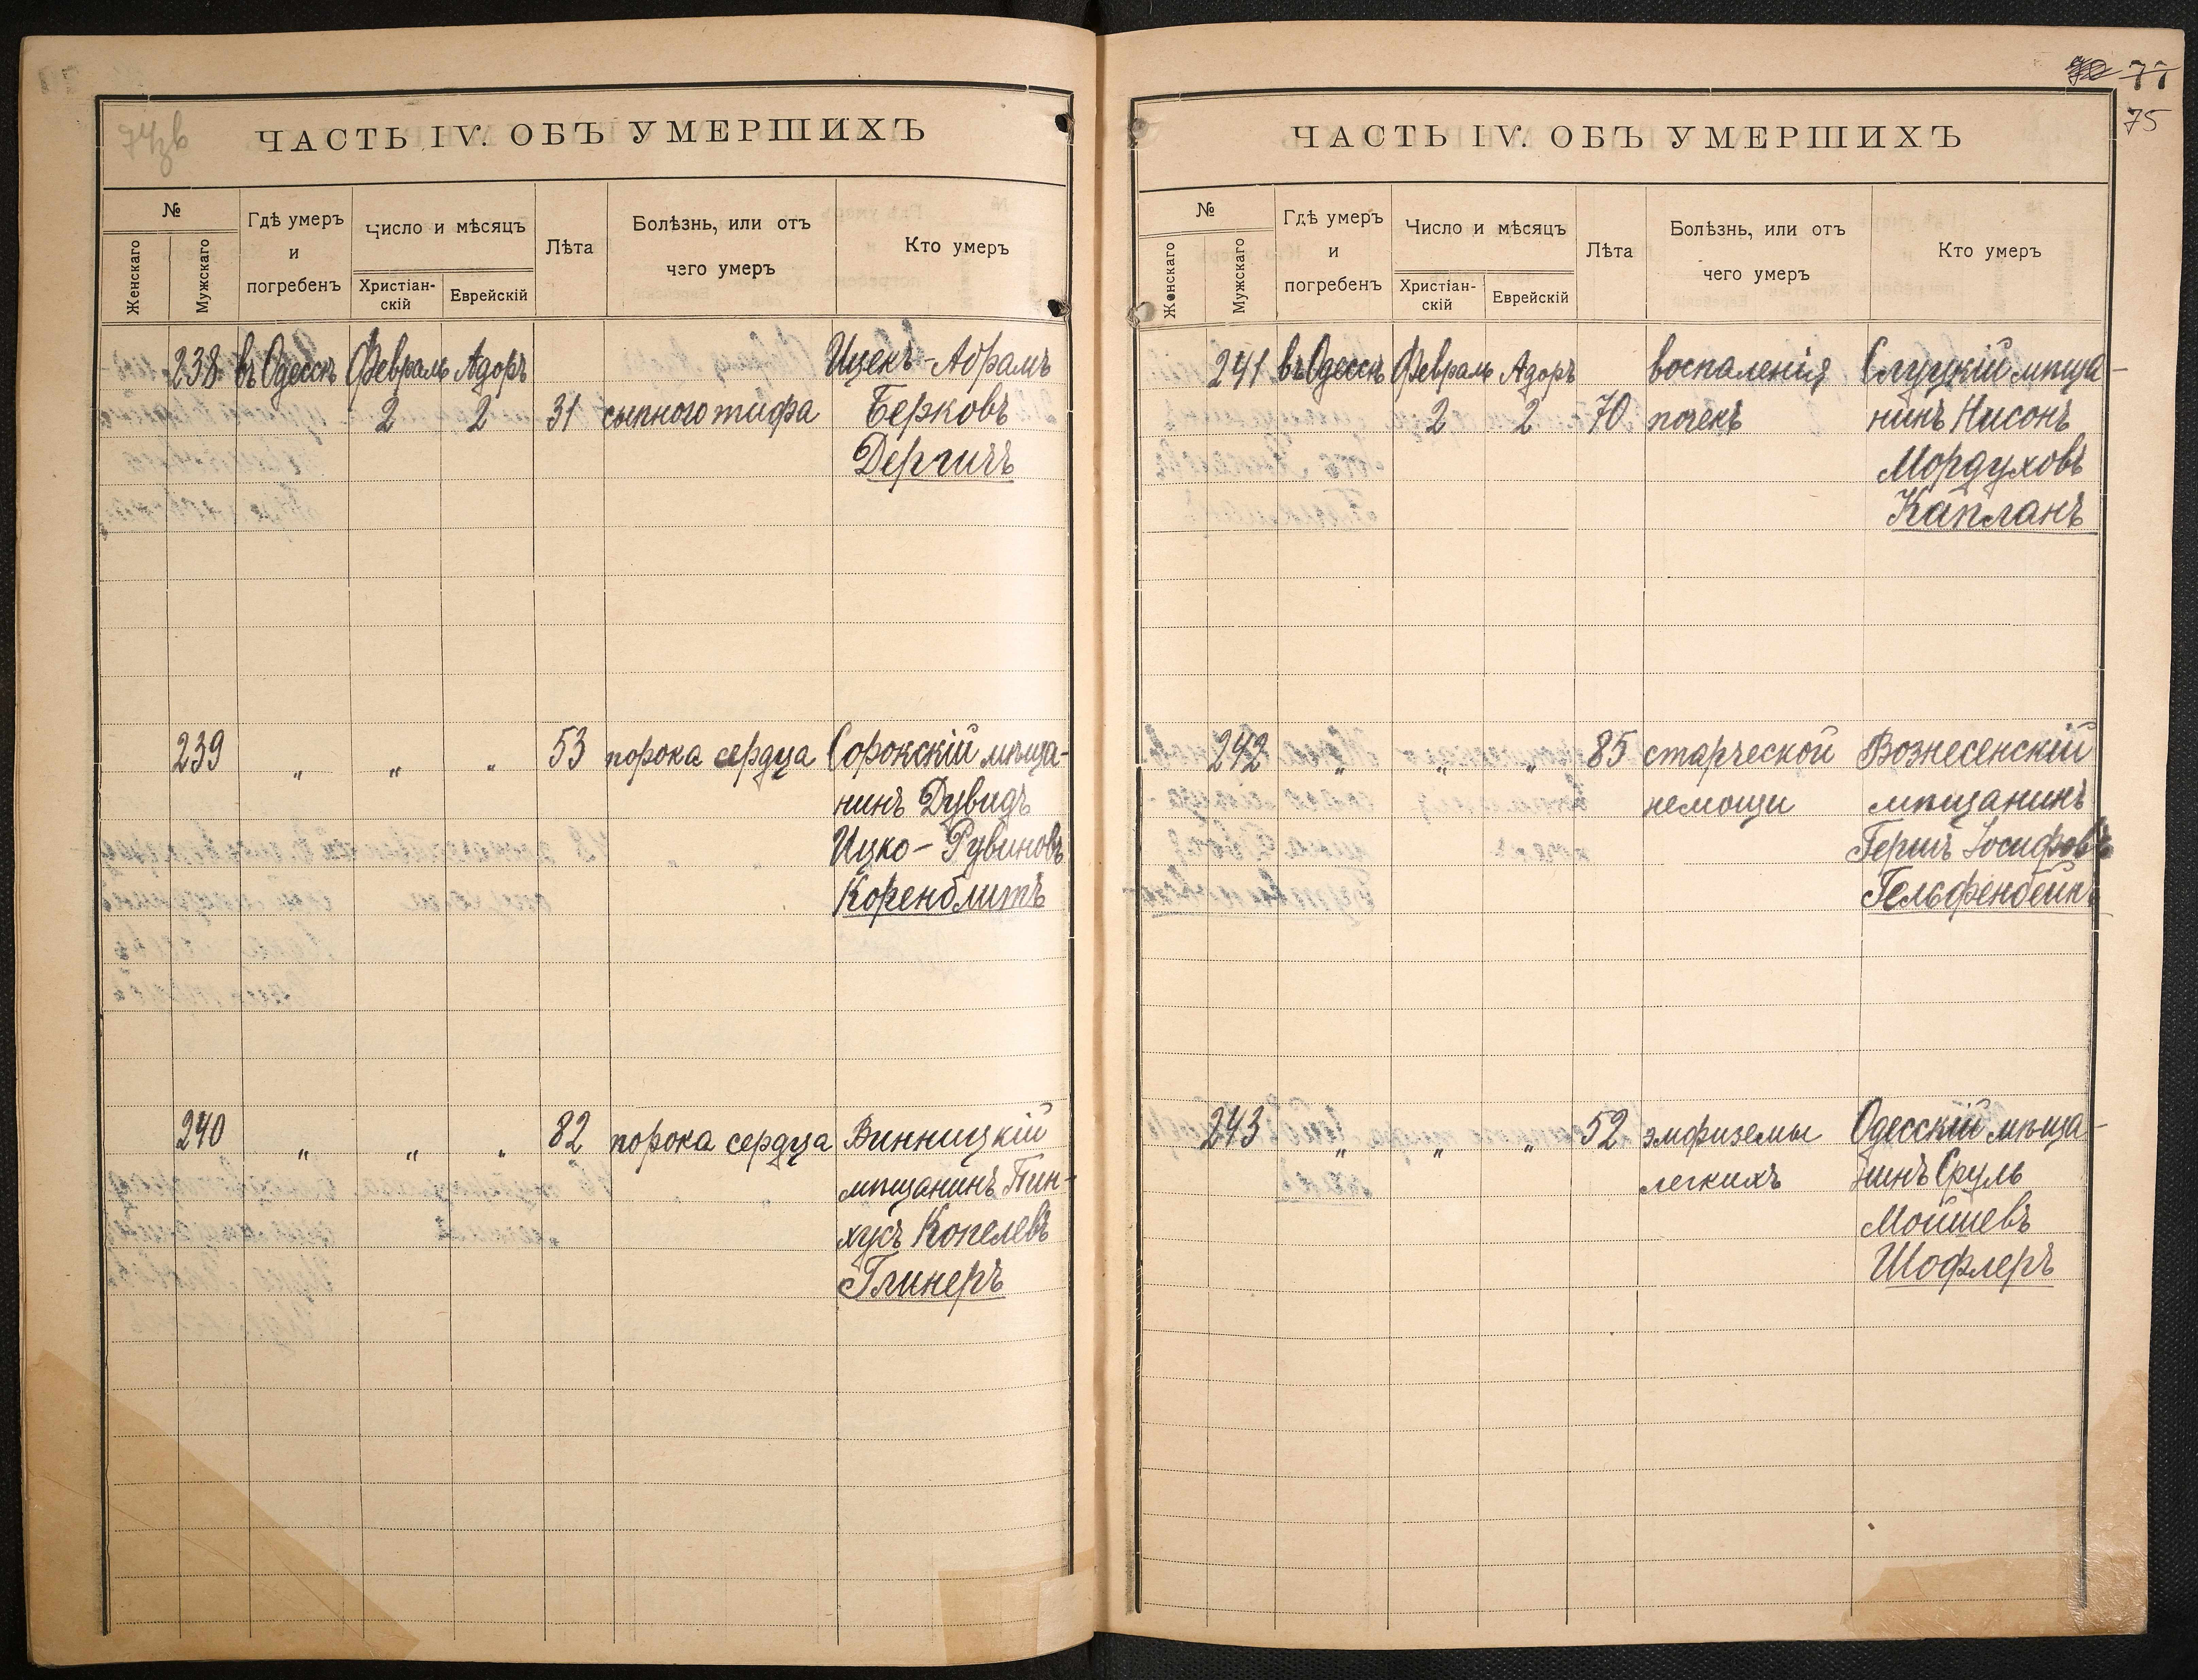 74 зв
ЧАСТЬ IV. ОБЪ УМЕРШИХЪ
№
Женскаго
Мужскаго
Гдѣ умеръ
и
погребенъ
Число и мѣсяцъ
Христіан-
скій
Еврейскій
Лѣта
Болѣзнь, или отъ
чего умеръ
Кто умеръ
238 въ Одессѣ Февраль Адоръ Ицекъ-Абрамъ
2 2 31 сыпного тифа Берковъ
Дергичъ
239 „ „ „ 53 порока сердца Сорокскій мѣща-
нинъ Дувидъ
Ицко-Рувиновъ
Коренблитъ
240 „ „ „ 82 порока сердца Винницкій
мѣщанинъ Пин-
хусъ Копелевъ
Глинеръ
77
75
ЧАСТЬ IV. ОБЪ УМЕРШИХЪ
№
Женскаго
Мужскаго
Гдѣ умеръ
и
погребенъ
Число и мѣсяцъ
Христіан-
скій
Еврейскій
Лѣта
Болѣзнь, или отъ
чего умеръ
Кто умеръ
241 въ Одессѣ Февраль Адоръ воспаленія Слуцкій мѣща-
2 2 70 почекъ нинъ Нисонъ
Мордуховъ
Капланъ
242 „ „ „ 85 старческой Вознесенскій
немощи мѣщанинъ
Гершъ Іосифовъ
Гельфенбейнъ
243 „ „ „ 52 эмфиземы Одесскій мѣща-
легкихъ нинъ Сруль
Мойшевъ
Шофлеръ